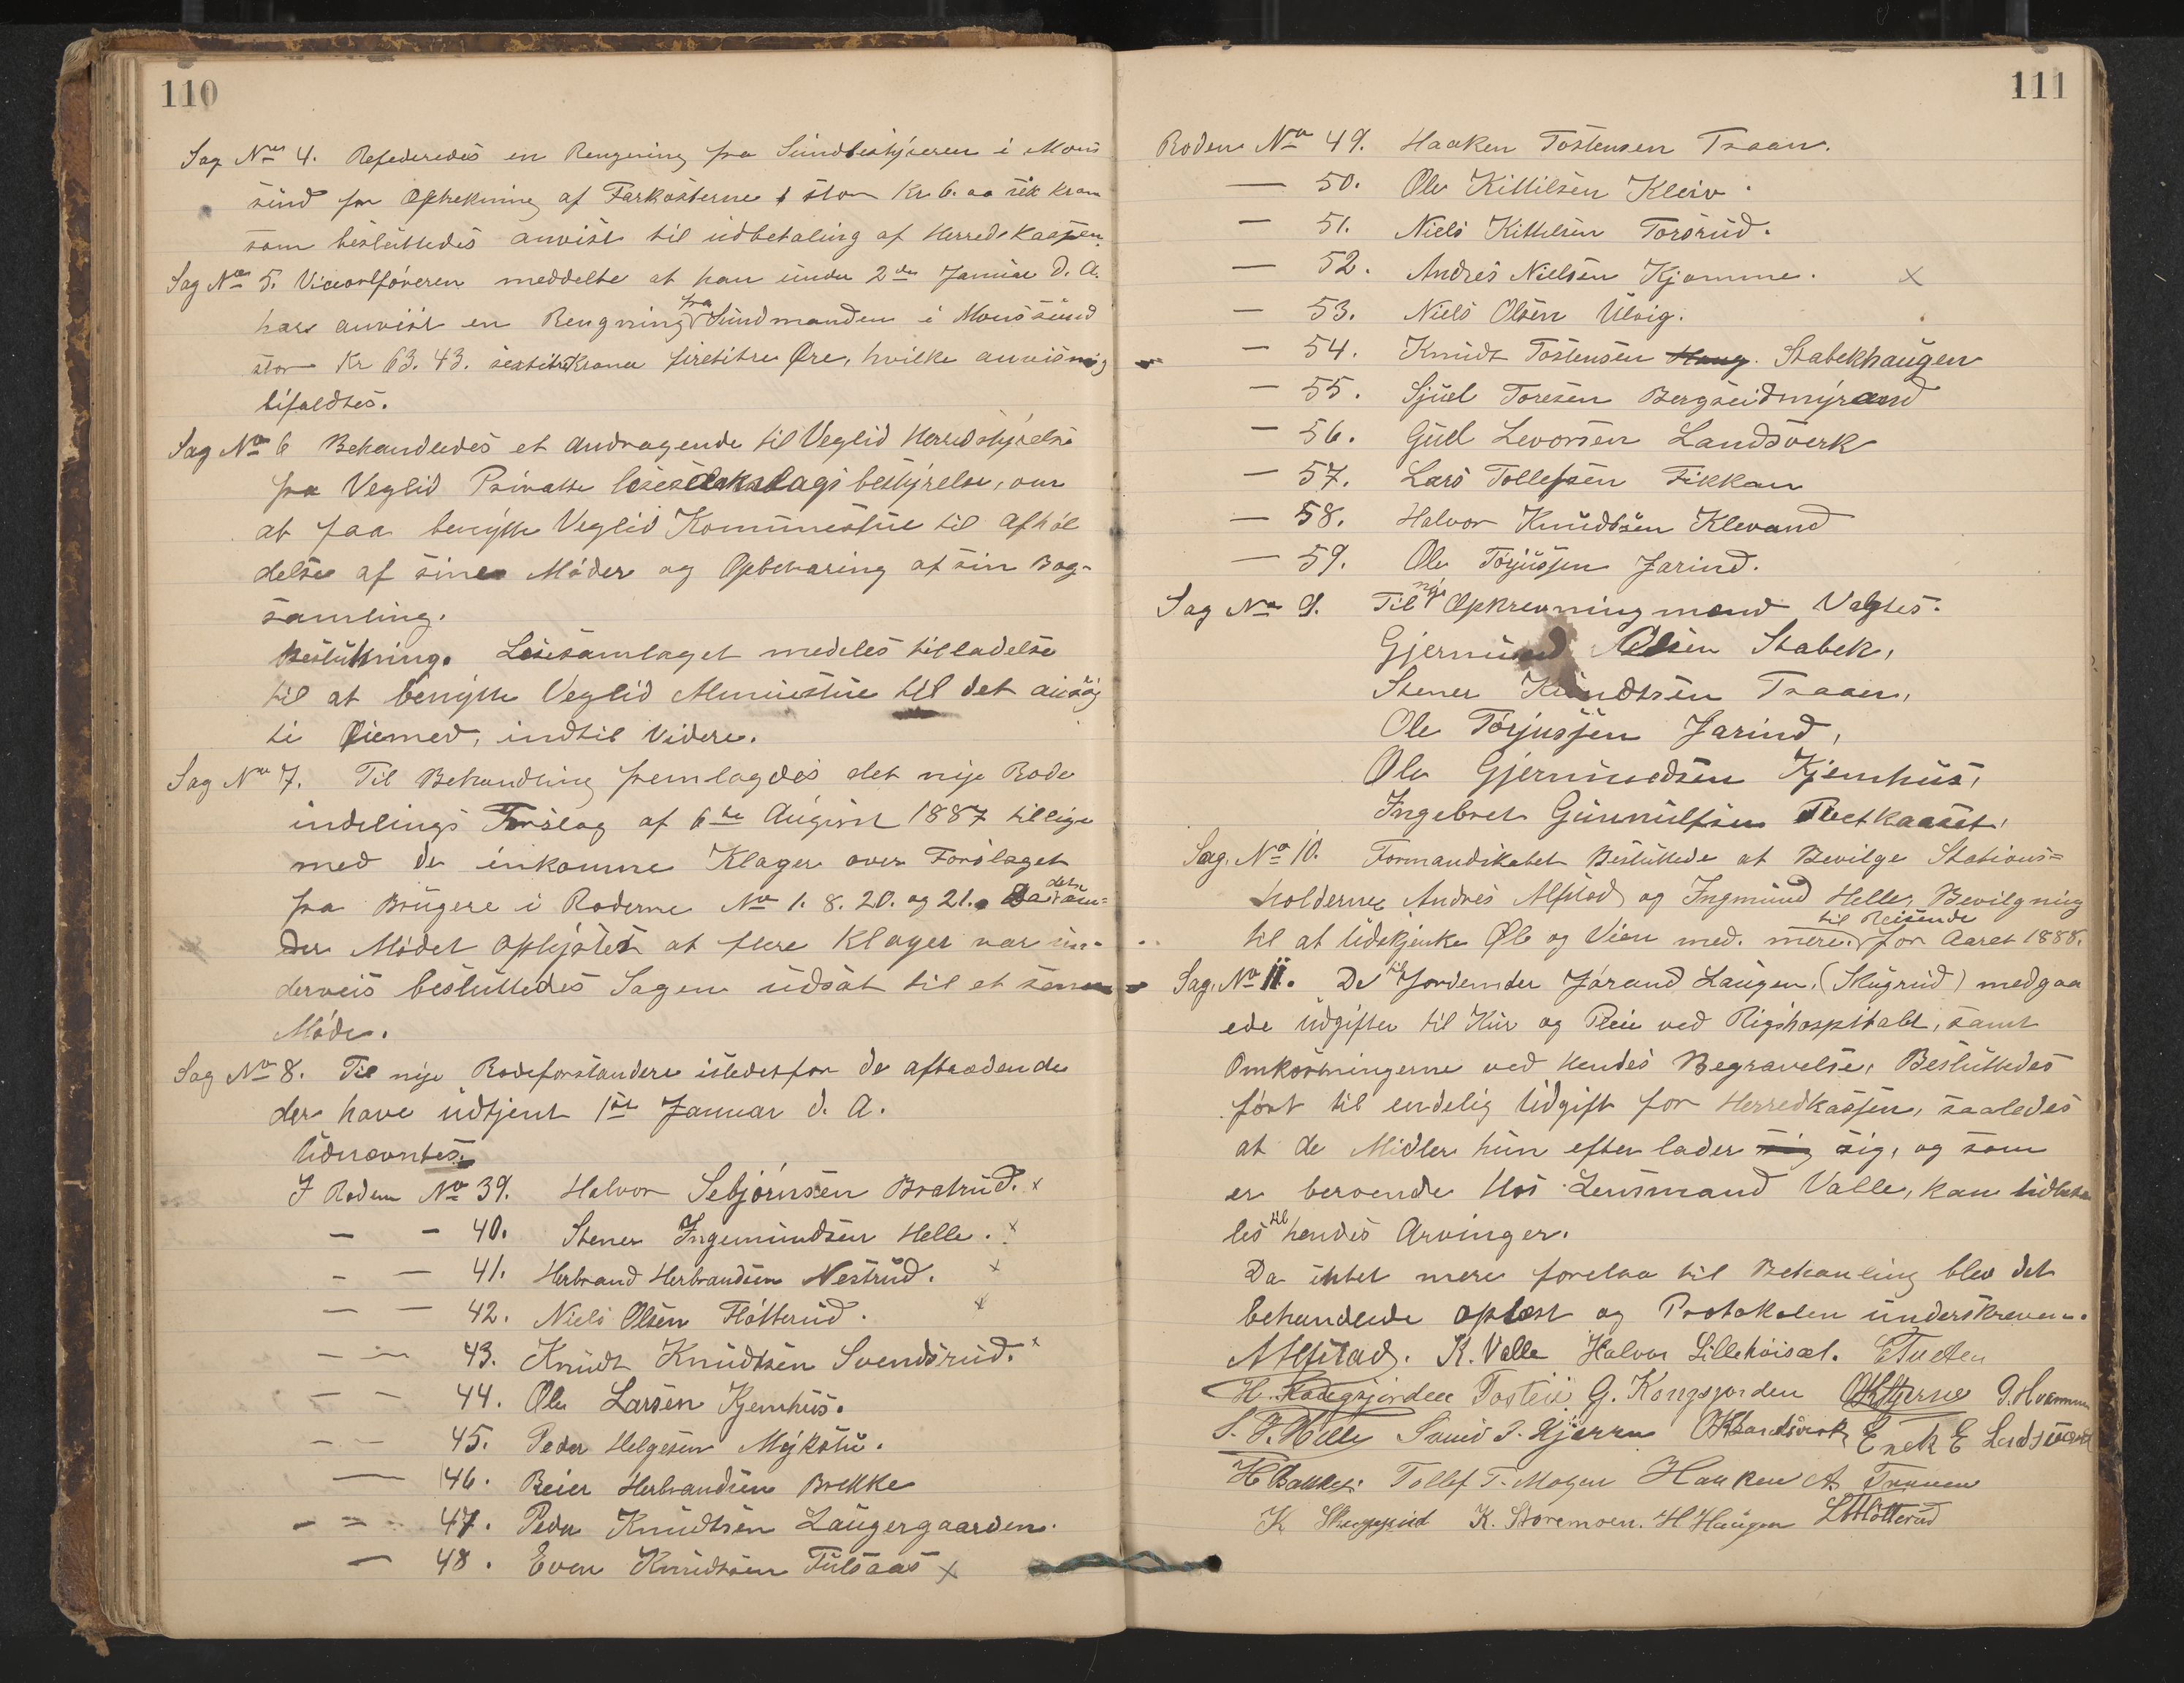 110
Sag No 4. Refederedes en Rengening fra Sundbestÿreren i Mons
sund for Optrekning af Farkosterne stor Kr. 6. oo sex kron
som besluttedes anvist til udbetaling af Herredskassen.
Sag No 5. Viceordføreren meddelte at han under 2den Januar d. A.
have anvist en Rengning fra Sundmanden i Monssund
stor Kr 63. 43. sextitre Kroner firetitre Øre, hvilke anvisning
bifaldtes.
Sag No 6 Behandledes et Andragende til Veglid Herredstyrelse
fra Veglid Private læseselskaslags bestyrelse, om
at faa benytte Veglid Kommunestue til afhol
delse af sine Møder og Opbevaring af sin Bog-
samling.
Beslutning. Læsesamlaget medeles tilladelse
til at benytte Veglid Muniestue til det ansøg
te Øiemed, indtil Videre.
Sag No 7. Til Behandling fremlagdes det nye Rode
indelings Forslag af 6te August 1887 tillige
med de inkomne Klager over Forslaget
fra Brugere i Roderne No 1. 8. 20. og 21. Da det un=
der Mødet oplyses at flere Klager var un-
derveis besluttedes Sagen udsat til et senere
Møde.
Sag No 8. Til nye Rodeforstandere istedetfor de aftrædende
der have udtjent 1ste Januar d. A.
Udnævntes.
I Roden No 39. Halvor Sebjørnsen Bratrud. x
— - 40. Stener Ingemundsen Helle. x
- — 41. Herbrand Herbrandsen Nestrud. x
— — 42. Niels Olsen Fløtterud. x
— — 43. Knudt Knudtsen Svendsrud. x
— — 44. Ole Larsen Kjemhus.
— — 45. Peder Helgesen Mykstu.
— 46. Beier Herbrandsen Brekke
- - - 47. Peder Knudtsen Laugergaarden.
— 48. Even Knudtsen Fulsaas x
111
Roden No 49. Haaken Tostensen Traaen.
— 50. Ole Kittilsen Kleiv.
— 51. Niels Kittelsen Torsrud.
— 52. Andres Nielsen Kjomme. x
— 53. Niels Olsen Ulvig.
— 54. Knudt Tostensen Haug. Stabekhaugen
— 55. Sjuel Toresen Bergseidmyrand
— 56. Gull Levorsen Landsverk
— 57. Lars Tollefsen Fikkan
— 58. Halvor Knudtsen Klevand
— 59. Ole Torjussen Jarind.
Sag No 9. Til nye Opkrevningmænd Valgtes.
Gjermund Olsen Stabek,
Stener Knudtsen Traaen,
Ole Torjussen Jarind,
Ole Gjermundsen Kjemhus,
Ingebret Gunnulfsen
Sag. No 10. Formandskabet Besluttede at Bevilge Stations=
holderne Andres Alfstad og Ingmund Helle, Bevilgning
til at Udskjenke Øle og Vien med. mere. til Reisende for Aaret 1888.
Sag. No 11. De til Jordemder Jørand Laugen, (Skugrud) medgaa
ede Udgifter til Kur og Pleie ved Rigshospitalet, samt
Omkostningerne ved Hendes Begravelse, Besluttedes
ført til endelig Udgift for Herredkassen, saaledes
at de Midler hun efter lader sig sig, og som
er beroende Hos Lensmand Valle, kan Udbeta
les til hendes Arvinger.
Da intet mere forelaa til Behanling blev det
behandlede oplæst og Protokolen underskreven.
A Alfstad. K. Valle Halvor Lillehøisæt.
H. Kongsjorden Tostei G. Kongsjorden OKHjerne
S. I. Helle OKLandsverk Enck E
H Bakke. Tollef T. Mogen Haaken A. Traaen
K Skuggrud K. Storemoen. H Haugen